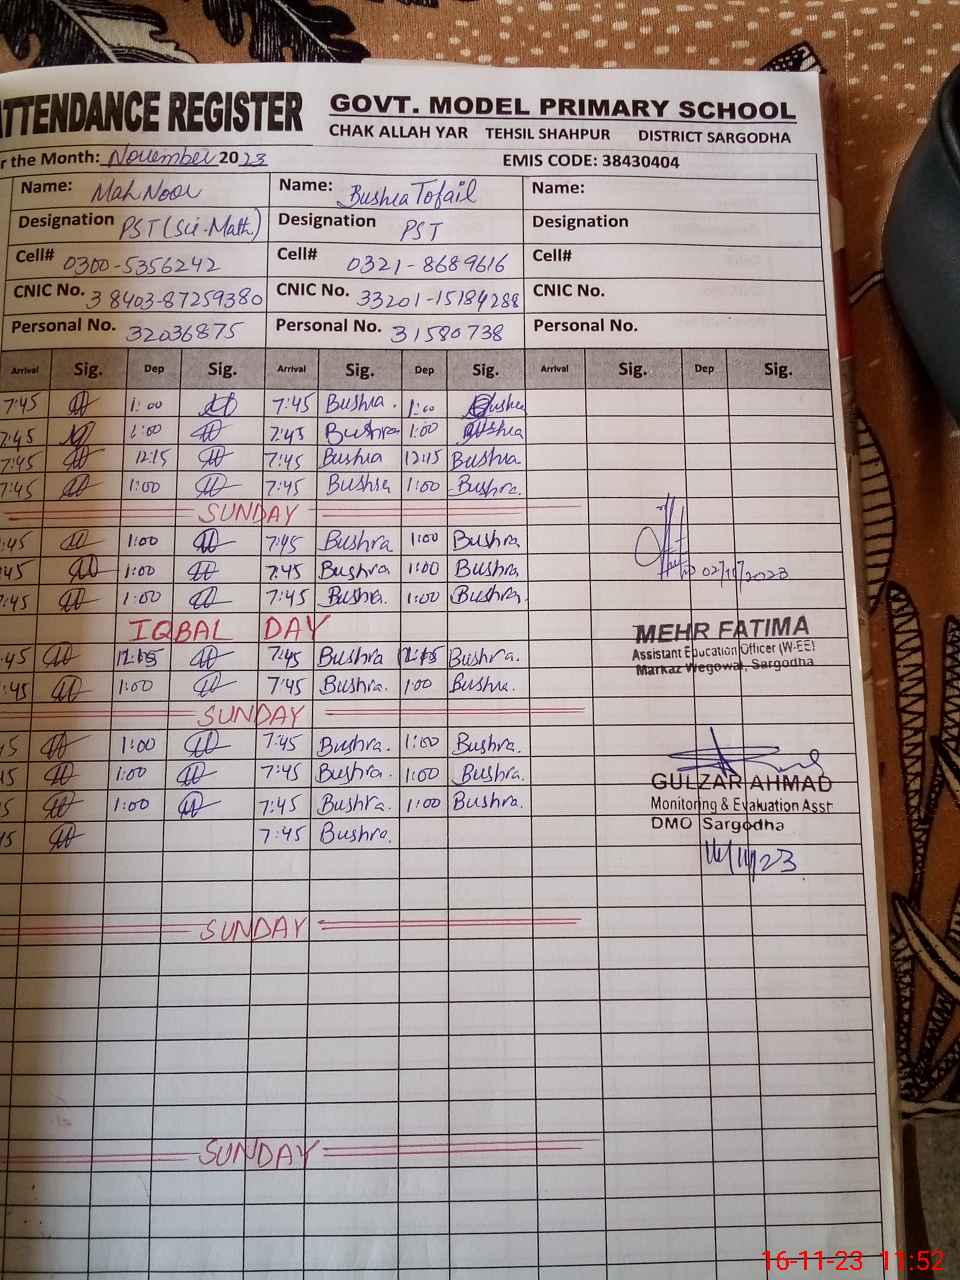 ATTENDANCE REGISTER
GOVT. MODEL PRIMARY SCHOOL
CHAK ALLAH YAR TEHSIL SHAHPUR DISTRICT SARGODHA
r the Month: November 2023 EMIS CODE: 38430404
Name: Mah Noor Name: Bushra Tofail Name:
Designation PST (Sci-Math) Designation PST Designation
Cell# 0300-5356242 Cell# 0321-8689616 Cell#
CNIC No. 38403-87259380 CNIC No. 33201-15184288 CNIC No.
Personal No. 32036875 Personal No. 31580738 Personal No.
Arrival Sig. Dep Sig. Arrival Sig. Dep Sig. Arrival Sig. Dep Sig.
7:45 1:00 7:45 Bushra. 1:00 Bushra
7:45 1:00 7:45 Bushra 1:00 Bushra
7:45 12:15 7:45 Bushra 12:15 Bushra
7:45 1:00 7:45 Bushra 1:00 Bushra.
SUNDAY
:45 1:00 7:45 Bushra 1:00 Bushra
:45 1:00 7:45 Bushra 1:00 Bushra
7:45 1:00 7:45 Bushra. 1:00 Bushra.
02/11/2023
IQBAL DAY
MEHR FATIMA
Assistant Education Officer (W-EE)
Markaz Wegowal, Sargodha
:45 12:15 7:45 Bushra 12:15 Bushra.
:45 1:00 7:45 Bushra. 1:00 Bushra.
SUNDAY
45 1:00 7:45 Bushra. 1:00 Bushra.
45 1:00 7:45 Bushra. 1:00 Bushra.
45 1:00 7:45 Bushra. 1:00 Bushra.
45 7:45 Bushra.
GULZAR AHMAD
Monitoring & Evaluation Asst
DMO Sargodha
16/11/23
SUNDAY
SUNDAY
16-11-23 11:52